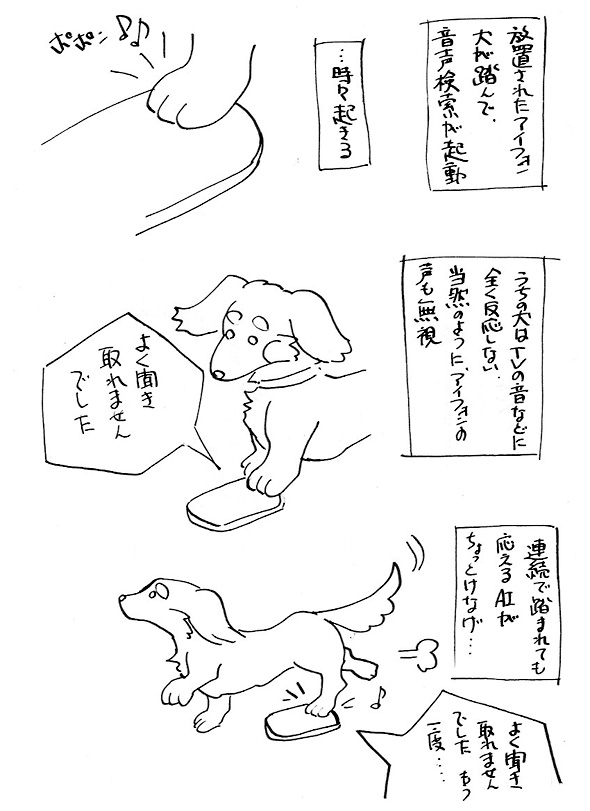 放置されたアイフォン
犬が踏んで、
音声検索が起動
…時々起きる
ポポン♪♪
うちの犬はTVの音などに
全く反応しない、
当然のように、アイフォンの
声も無視
よく聞き
取れません
でした
連続で踏まれても
応えるAIが
ちょっとけなげ…
♪
よく聞き
取れません
でした もう
一度……